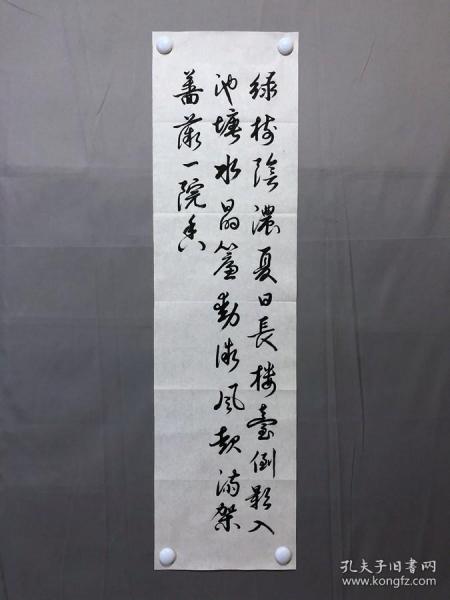 綠樹陰濃夏日長樓臺倒影入
池塘水晶簾動微風起滿架
薔薇一院香
孔夫子旧書网
www.kongfz.com